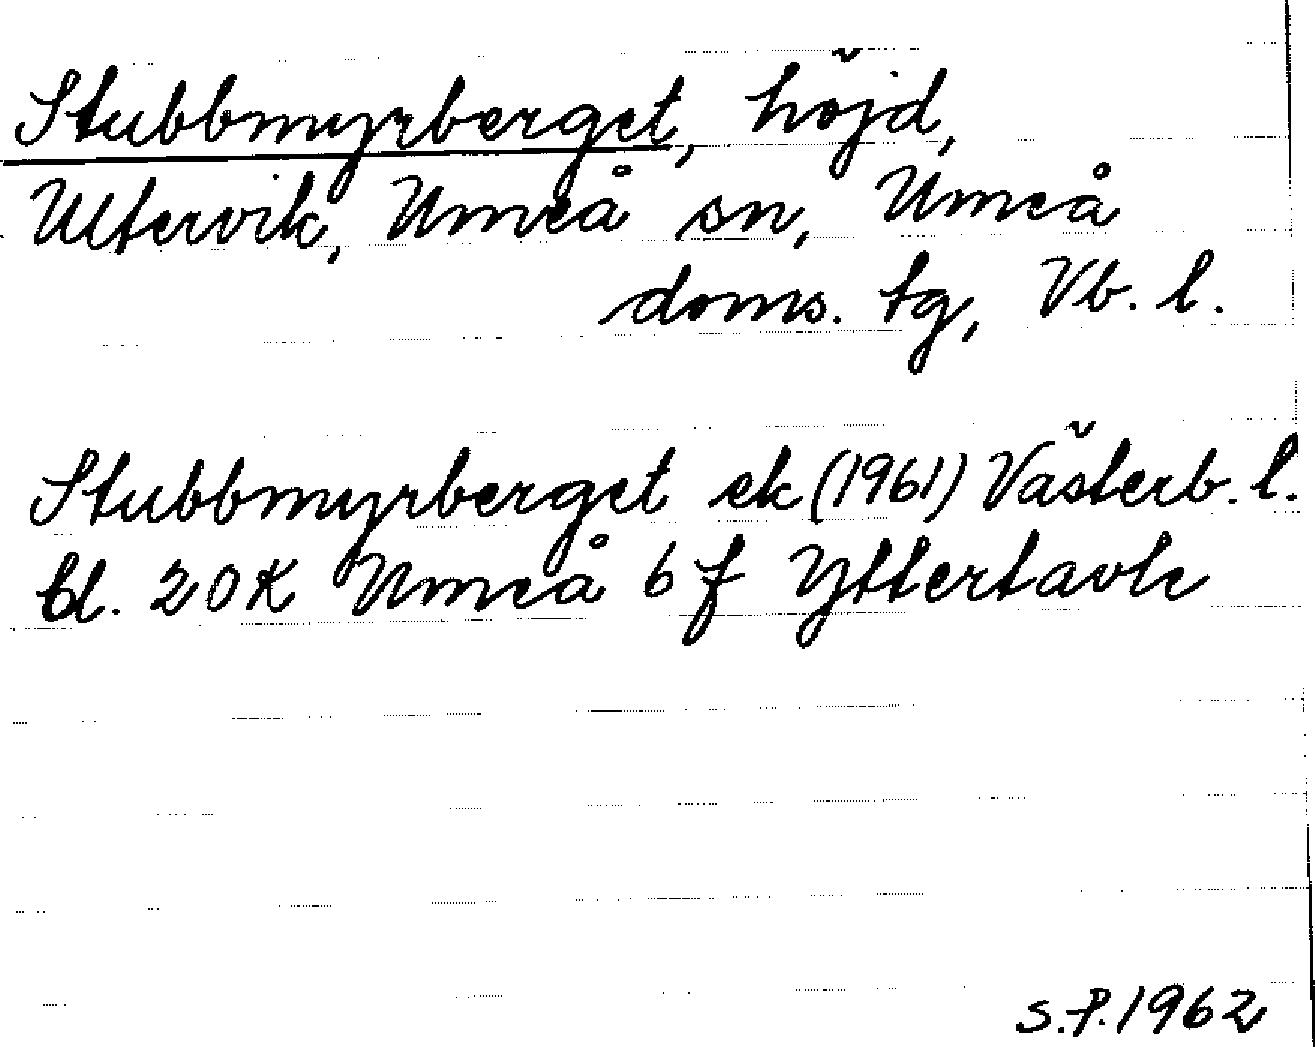 Stubbmyrberget, höjd,
Ultervik, Umeå sn, Umeå
doms. tg, Vb. l.
Stubbmyrberget ek (1961) Västerb. l.
bl. 20K Umeå 6 f Yttertavle
S.P. 1962